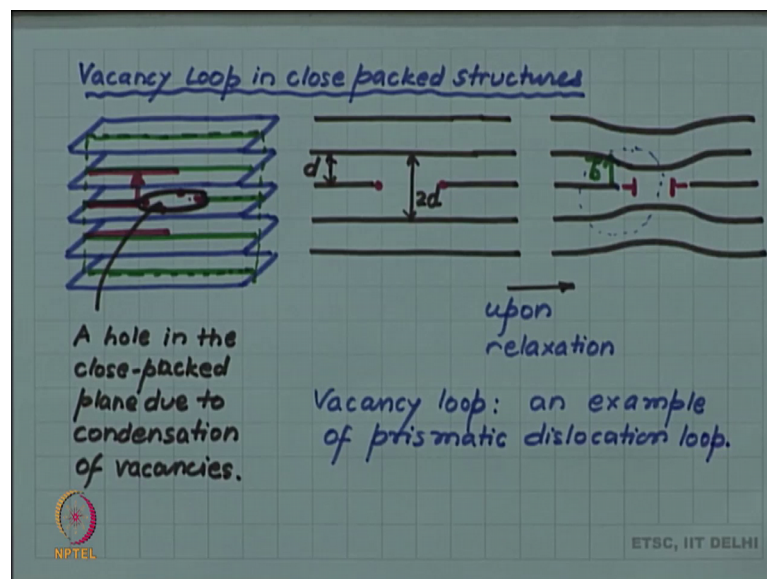 Vacancy Loop in close packed structures
d
2d
b
upon
relaxation
A hole in the
close-packed
plane due to
condensation
of vacancies.
Vacancy loop: an example
of prismatic dislocation loop.
NPTEL
ETSC, IIT DELHI